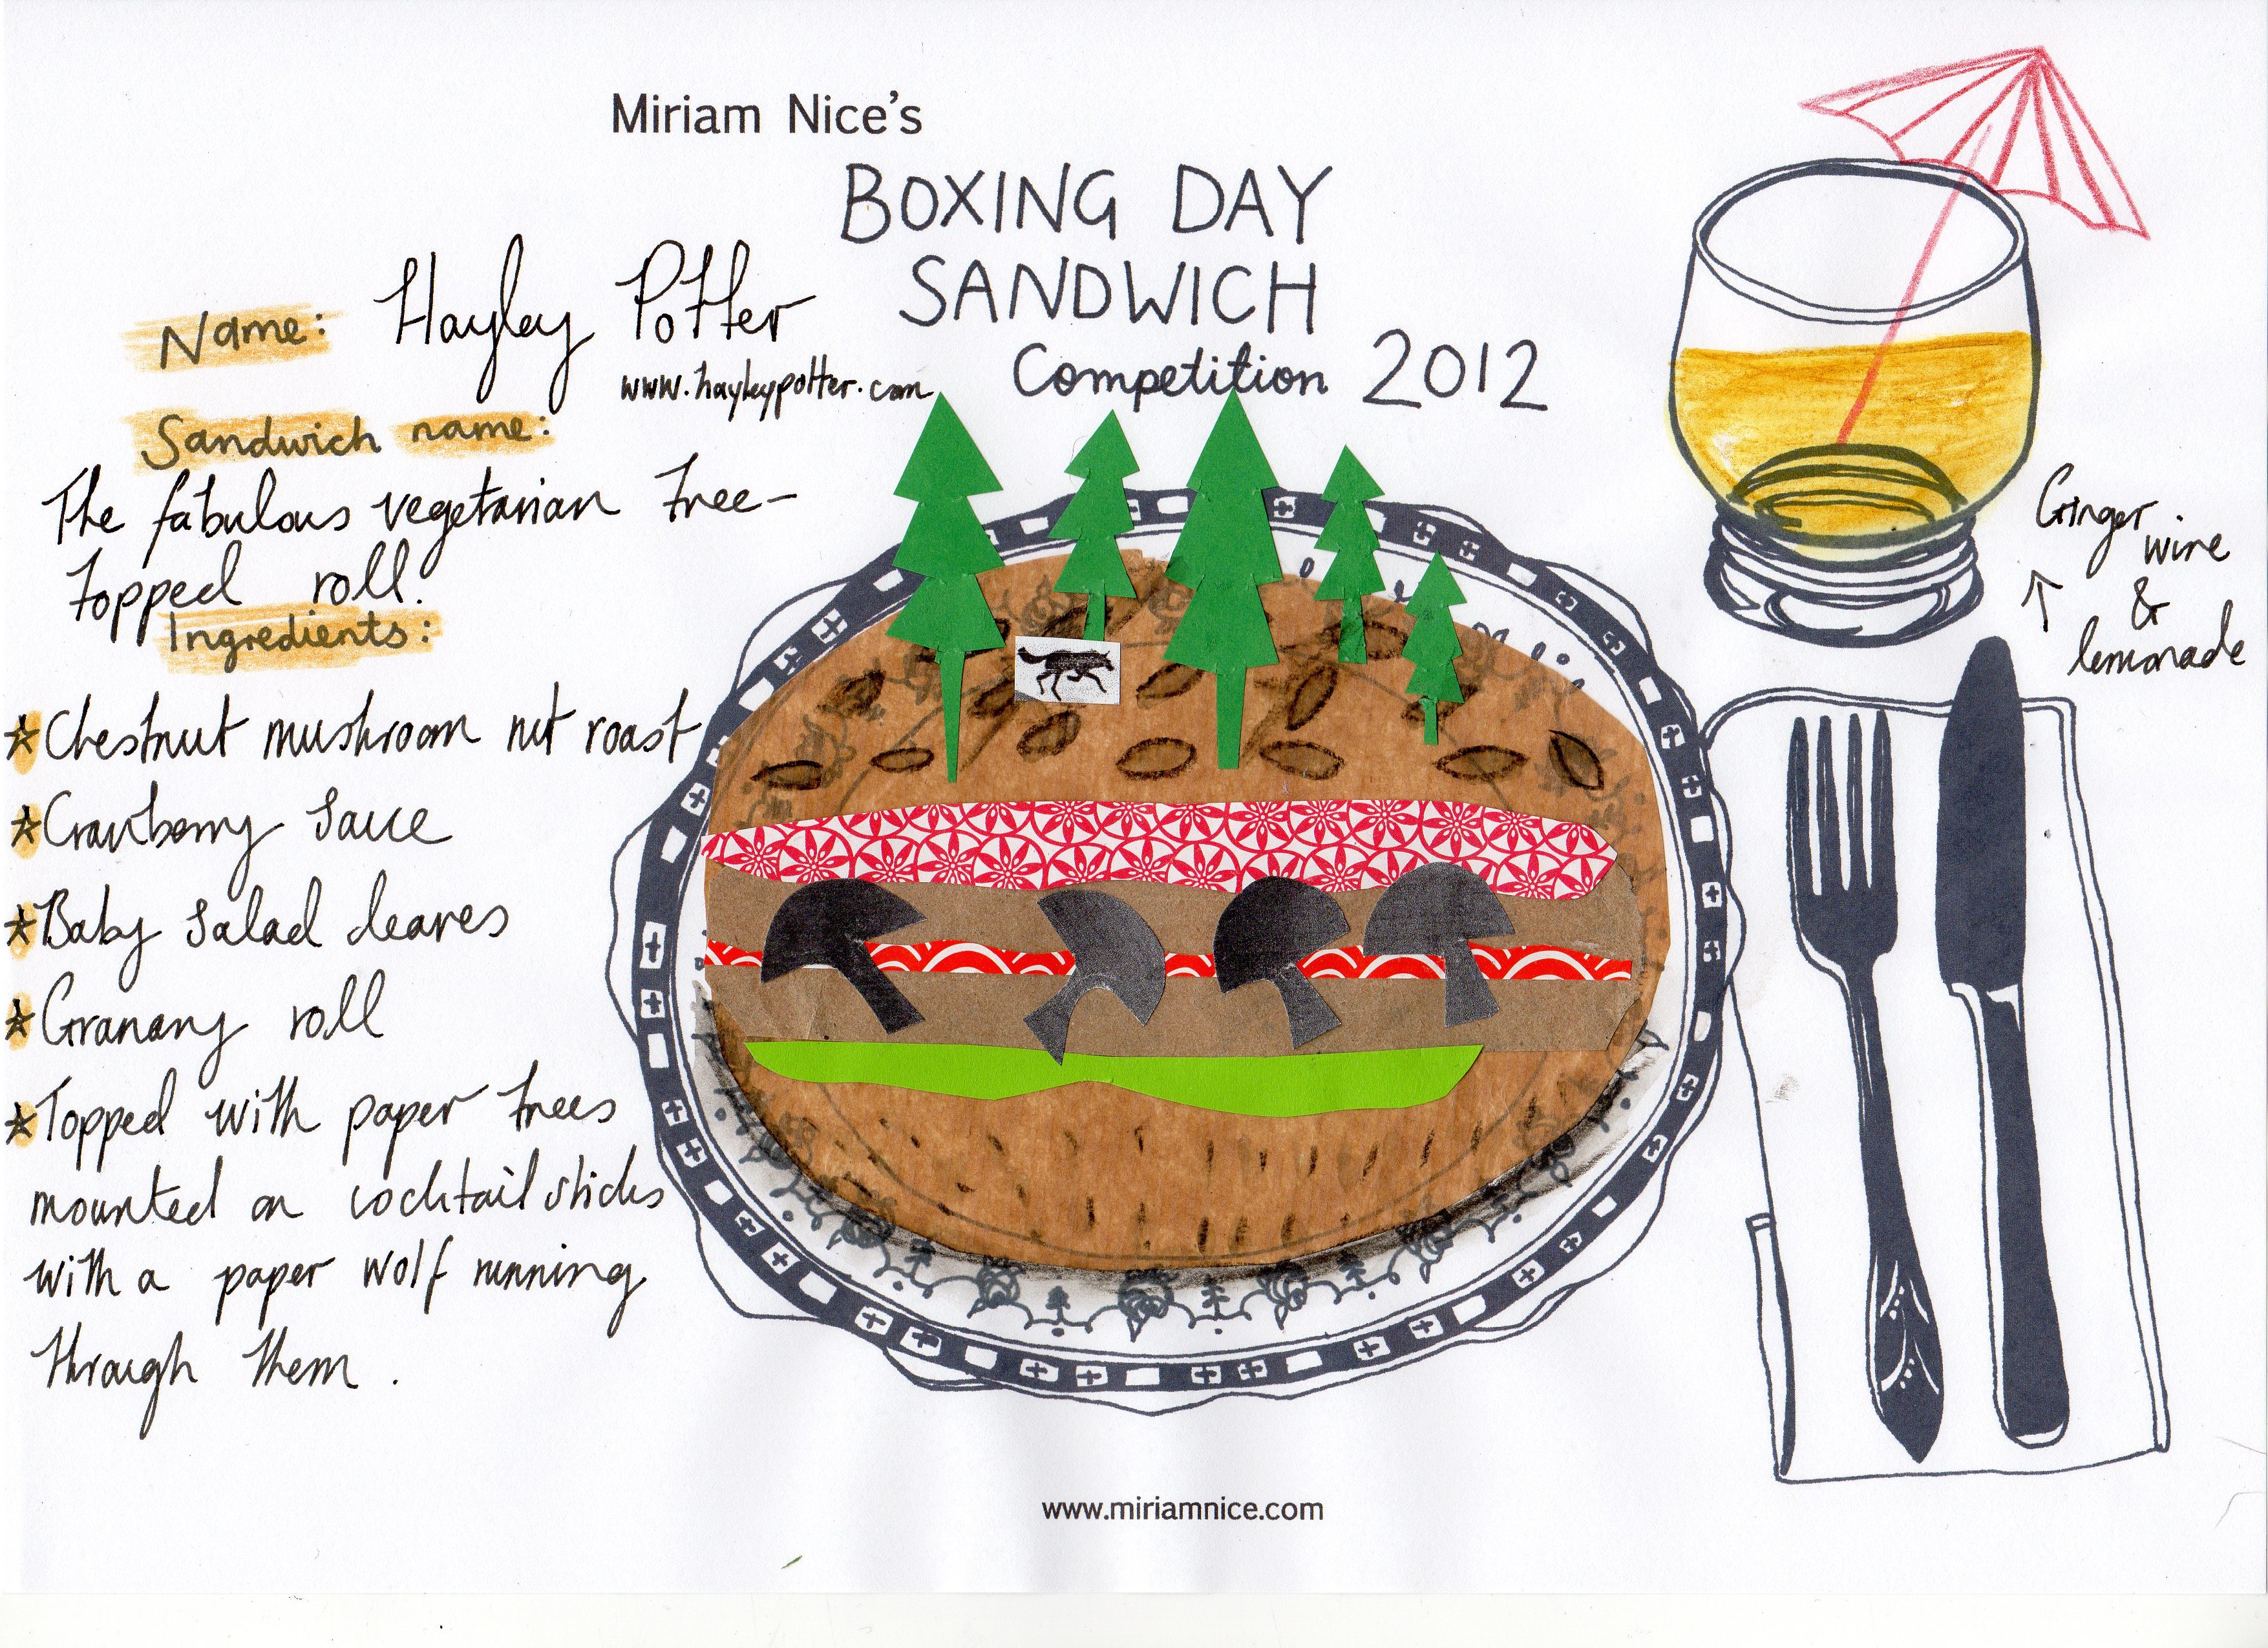 Miriam Nice's
BOXING DAY
SANDWICH
Competition 2012
Name: Hayley Potter
www.hayleypotter.com
Sandwich name:
The fabulous vegetarian tree-
topped roll.
Ingredients:
☆Chestnut mushroom nut roast
☆Cranberry sauce
☆Baby salad leaves
☆Granary roll
☆Topped with paper trees
mounted on cocktail sticks
with a paper wolf running
through them.
Ginger
wine
&
lemonade
www.miriamnice.com